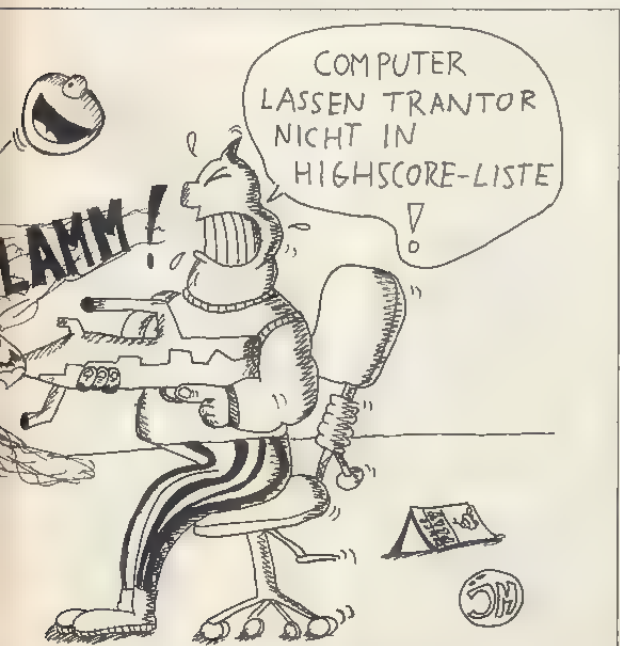 COMPUTER
LASSEN TRANTOR
NICHT IN
HIGHSCORE-LISTE
!
LAMM!